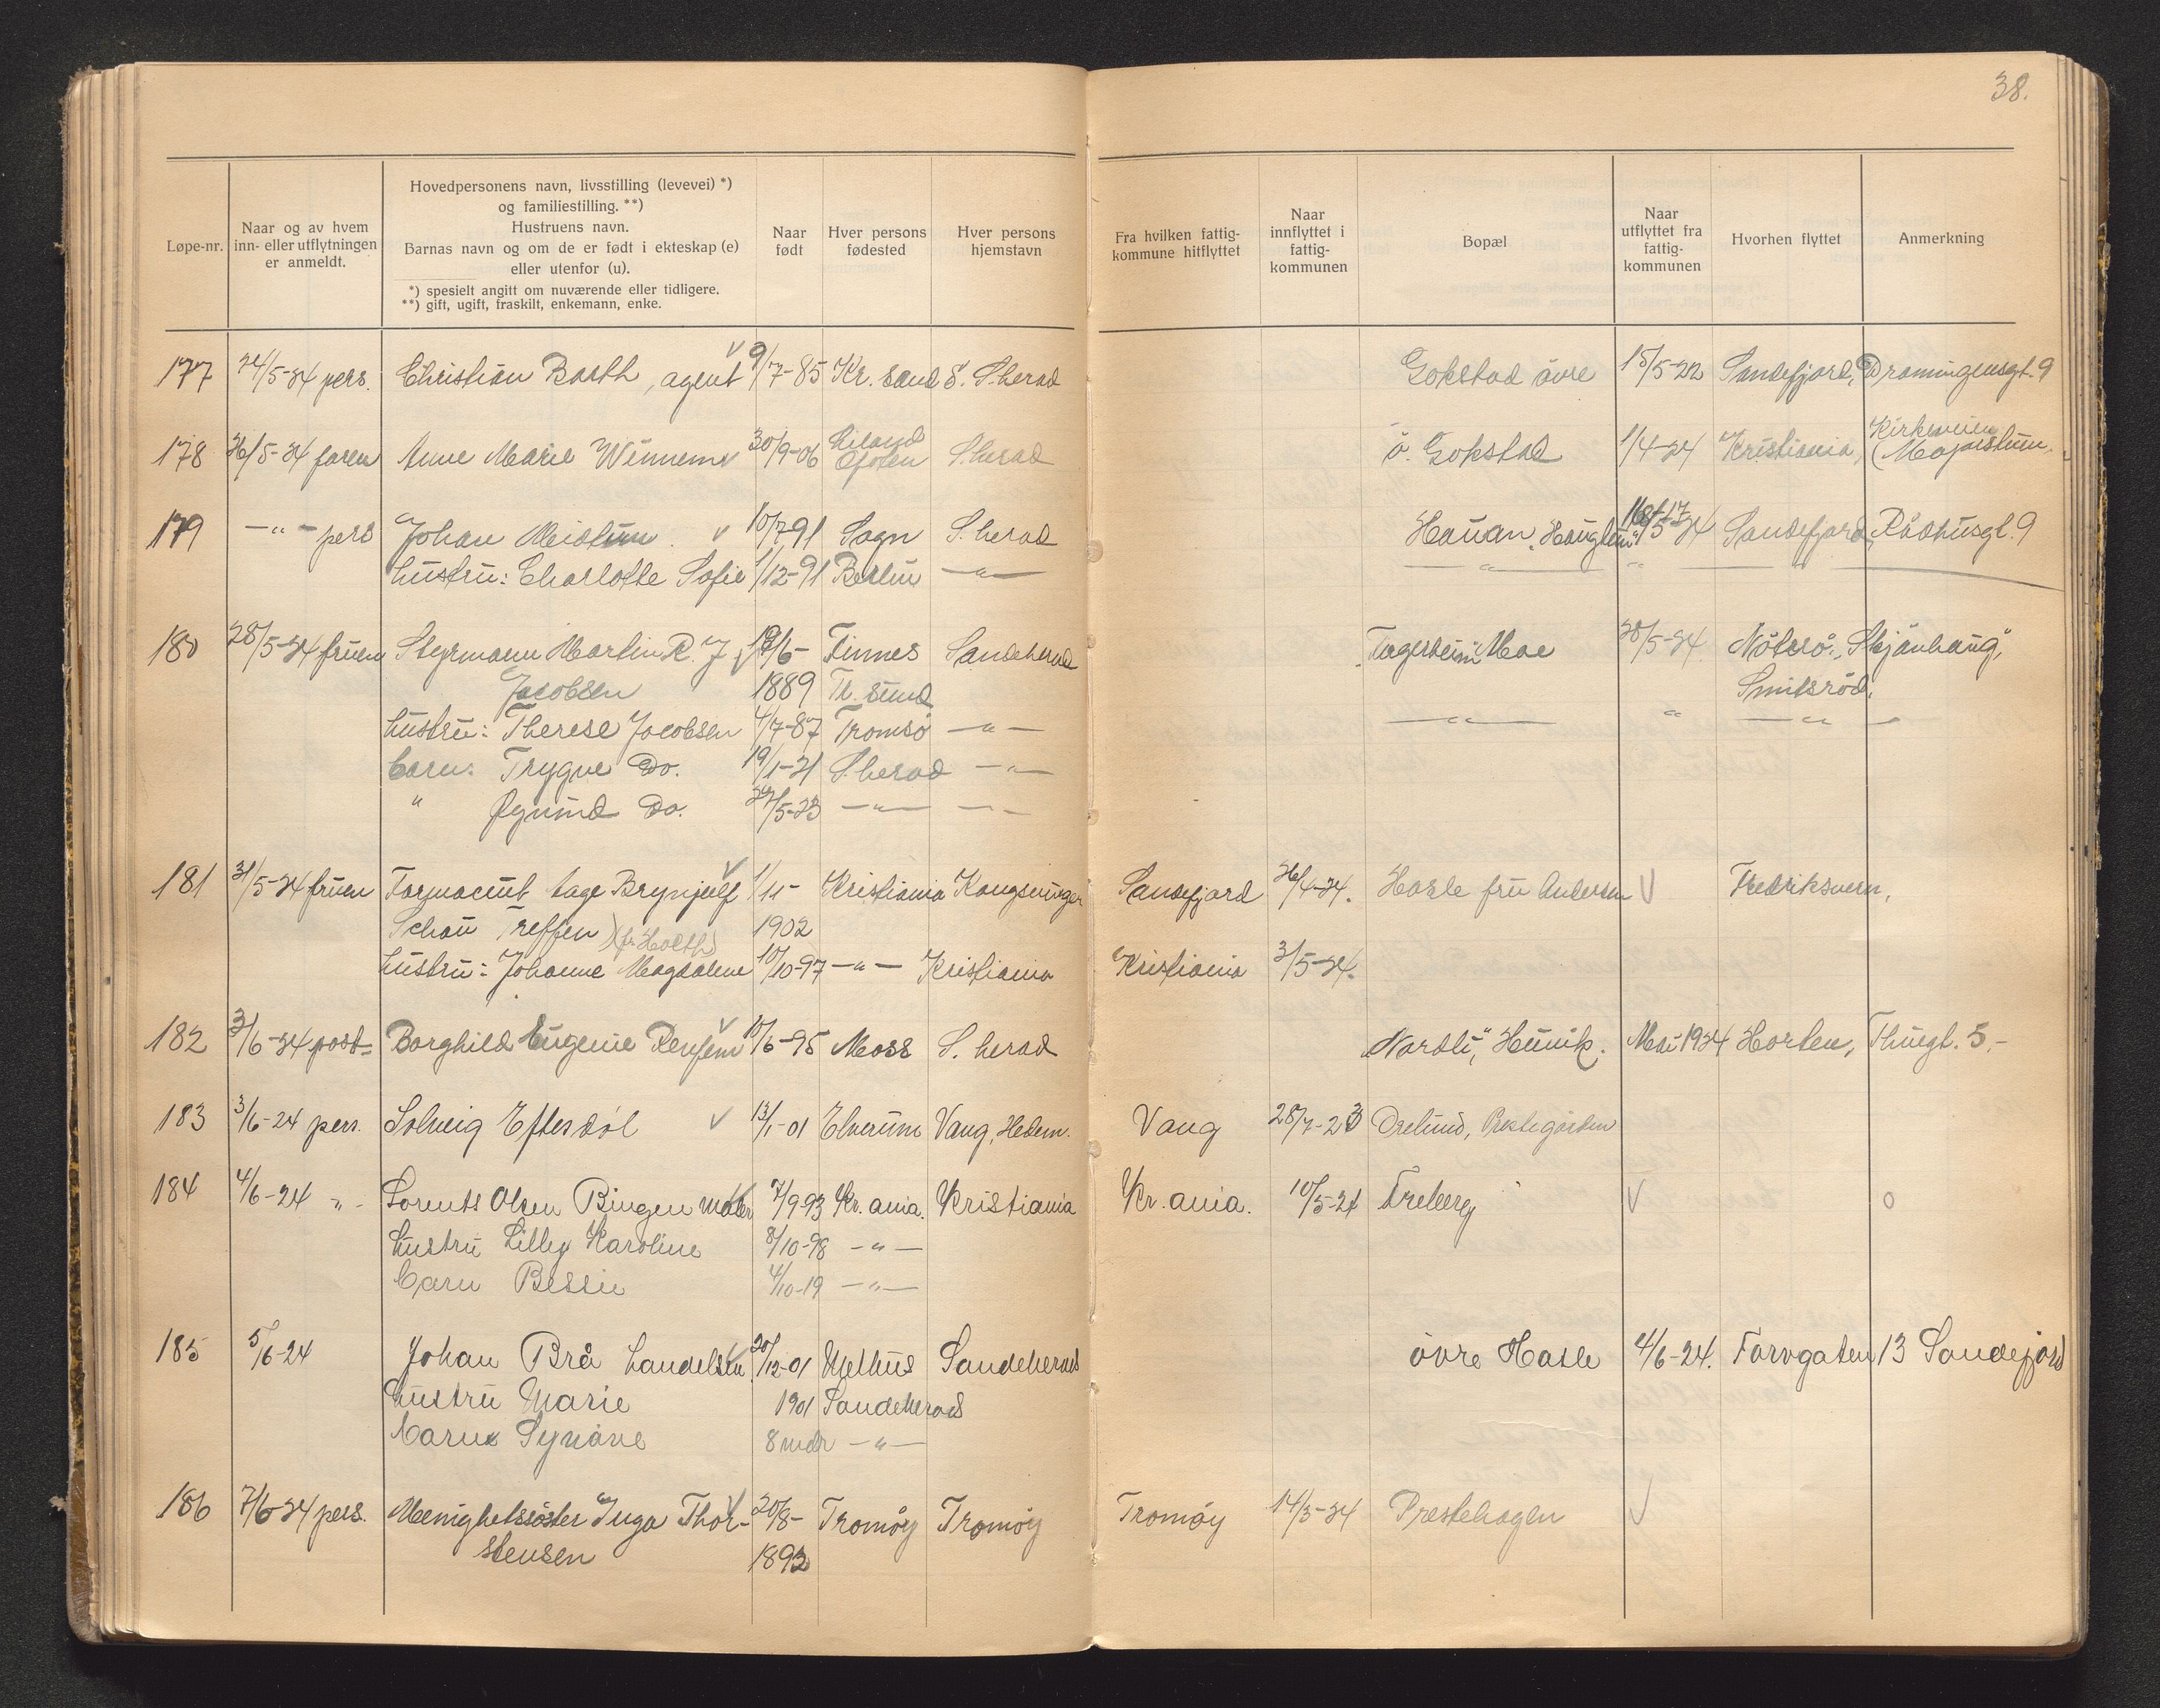 38.
Løpe-nr.
Naar og av hvem
inn- eller utflytningen
er anmeldt.
Hovedpersonens navn, livsstilling (levevei) *)
og familiestilling. **)
Hustruens navn.
Barnas navn og om de er født i ekteskap (e)
eller utenfor (u).
*) spesielt angitt om nuværende eller tidligere.
**) gift, ugift, fraskilt, enkemann, enke.
Naar
født
Hver persons
fødested
Hver persons
hjemstavn
Fra hvilken fattig-
kommune hitflyttet
Naar
innflyttet i
fattig-
kommunen
Bopæl
Naar
utflyttet fra
fattig-
kommunen
Hvorhen flyttet
Anmerkning
177 24/5-24 pers. Christian Barth, agent 9/7-85 Kr. sand S. S.herad Gokstad övre 15/5-22 Sandefjord, Dronningensgt. 9
178 26/5-24 faren Anne Marie Winnem 30/9-06 Liland Ofoten S.herad ö. Gokstad 1/4-24 Kristiania, Kirkeveien (Majorstuen.
179 -"- pers Johan Meistun 10/7 91 Sogn S.herad Hauan, Hauglun 5-24 Sandefjord, Rådhusgt. 9
hustru: Charlotte Sofie 1/12-91 Berlin -"- -"- " -"-
180 28/5-24 fruen Styrmann Martin R. J. /6- Finnes Sandeherad Fagerheim Moe 28/5-24 Nöterö, "Skjönhaug",
Jacobsen 1889 Th. sund Smidsröd,
hustru: Therese Jacobsen 4/7-87 Tromsö -"- -"- " -"-
barn: Trygve Do. 19/1-21 S.herad -"-
" Øyvind Do. 24/5-23 -"- -"-
181 31/5-24 fruen Farmaceut Aage Brynjulf 1/11- Kristiania Kongsvinger Sandefjord 26/4-24. Hasle fru Andersen Fredriksvern,
Schou Treffen (f. Holth) 1902
hustru: Johanne Magdalene 10/10-97 -"- Kristiania Kristiania 3/5-24.
182 3/6-24 post- Borghild Eugenie 10/6-95 Moss S. herad "Nordli", Hunik. Mai 1924 Horten, Thuegt. 5.-
183 3/6-24 pers. Solveig Eftesdöl 13/1-01 Elverum Vang, Hedem. Vang 28/7-23 Orelund, Prestegården
184 4/6-24 " - Lorents Olsen Bingen maler 7/9-93 Kr.ania. Kristiania Kr.ania. 10/5-24 Freberg o
hustru Lilly Karoline 8/10-98 -"-
barn Bessie 4/10-19 -"-
185 5/6-24 Johan Brå handelsm 20/12-01 Melhus Sandeherad övre Hasle 4/6-24. Torvgaten 13 Sandefjord
hustru Marie 1901 Sandeherad
barn Synöve 8 mdr -"-
186 7/6-24 pers. Menighetssöster Inga Thor- 20/8- Tromøy Tromøy Tromøy 14/3-24 Prestehagen
stensen 1893